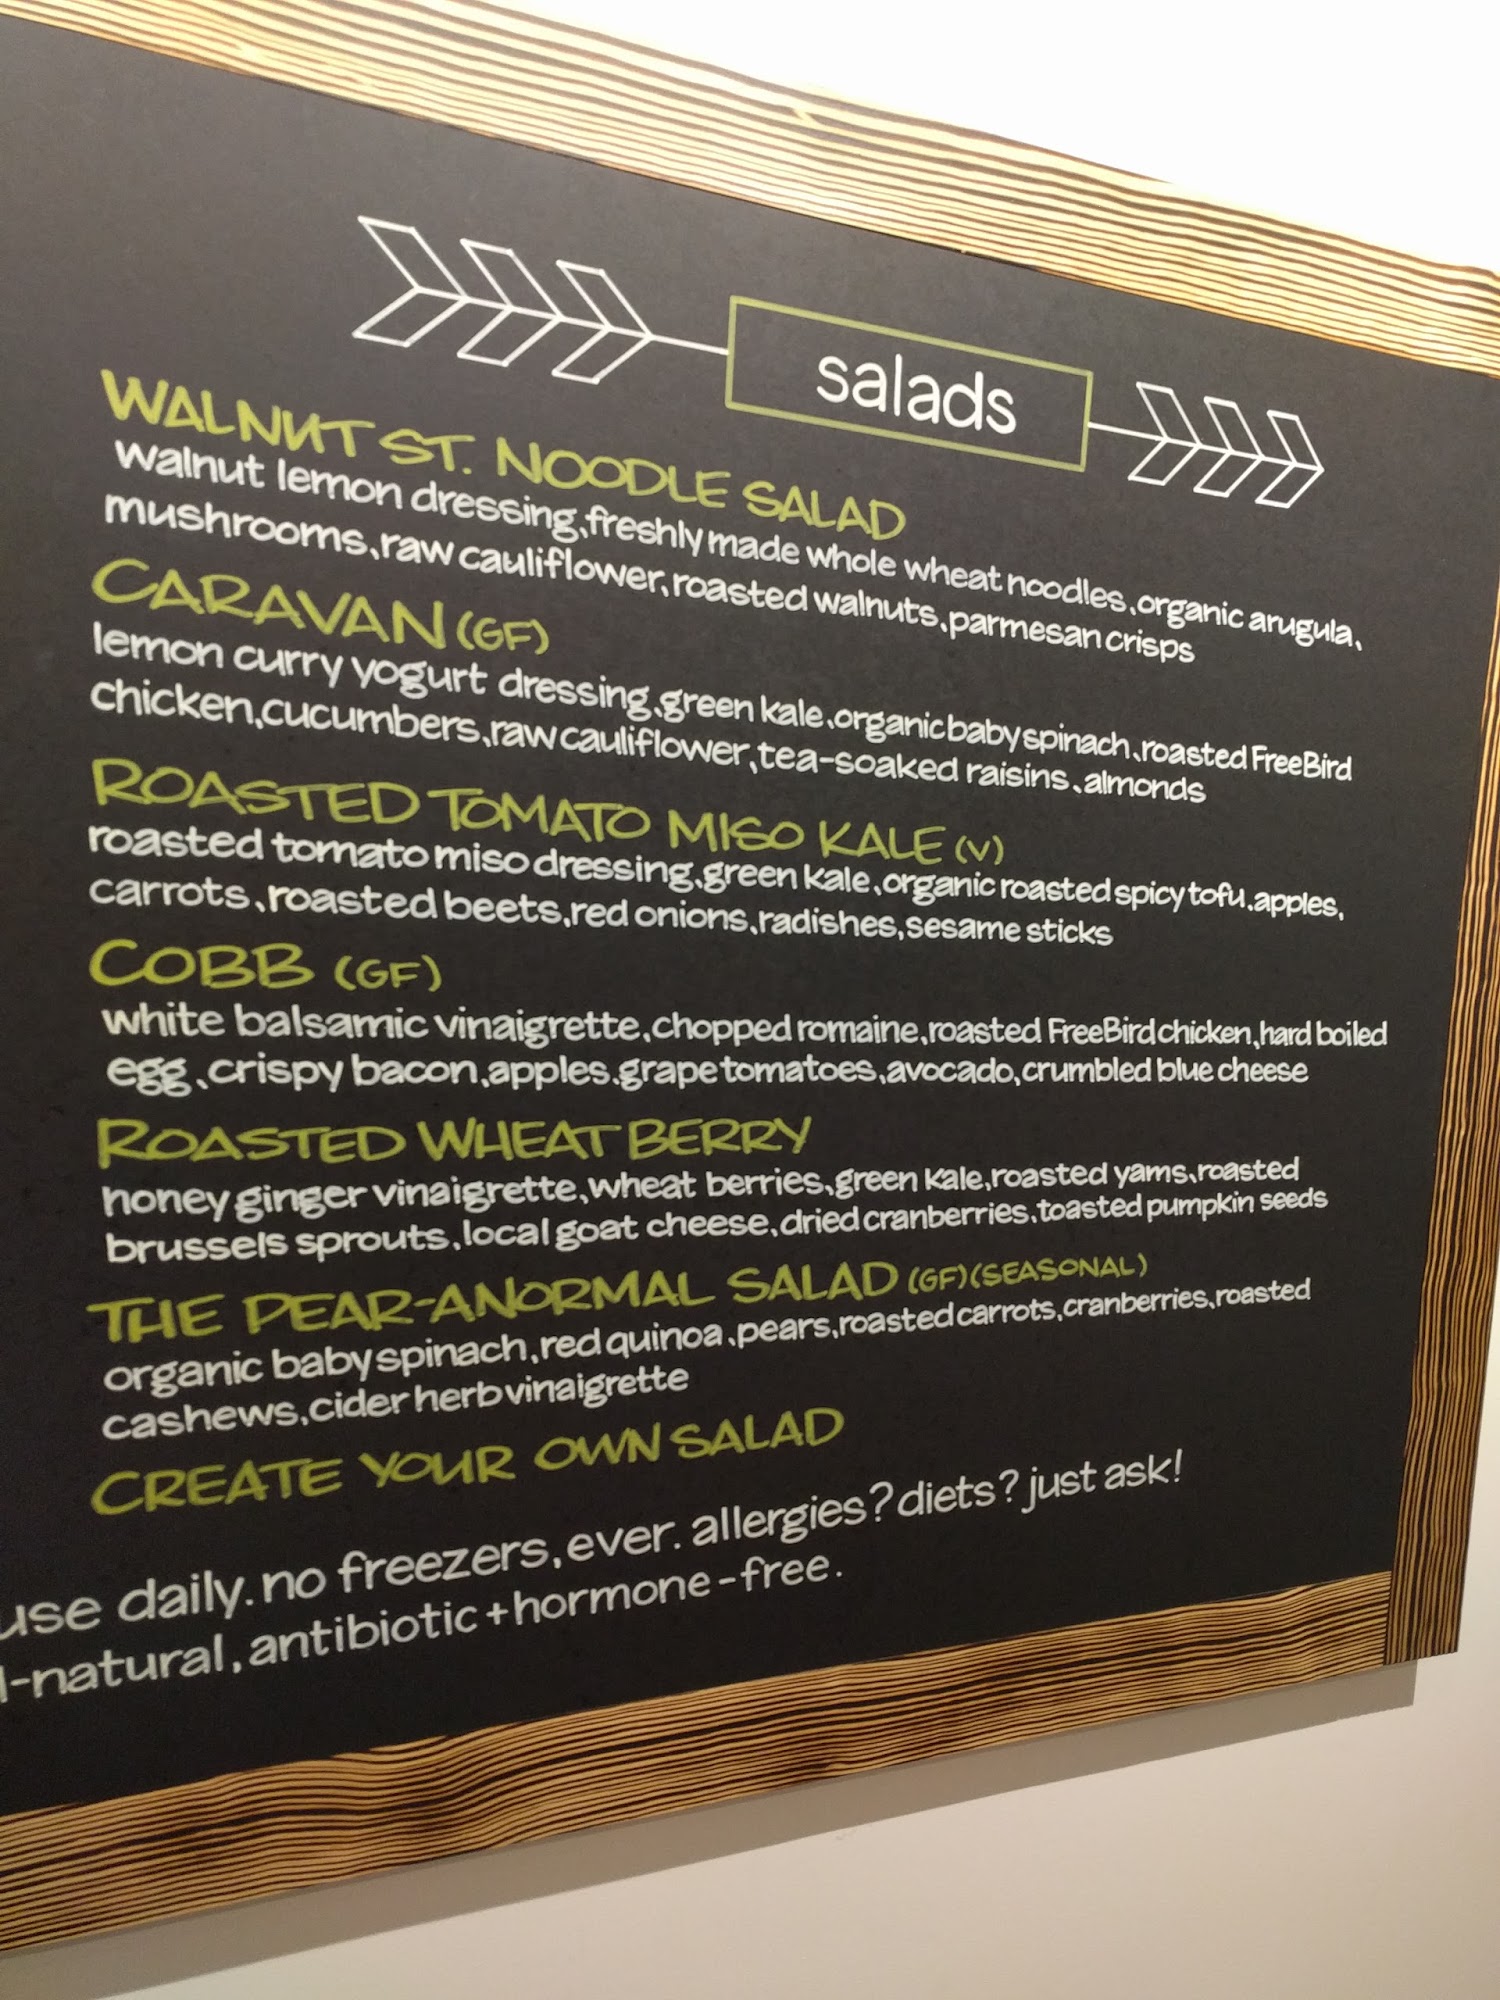 salads
WALNUT ST. NOODLE SALAD
walnut lemon dressing, freshly made whole wheat noodles, organic arugula,
mushrooms, raw cauliflower, roasted walnuts, parmesan crisps
CARAVAN (GF)
lemon curry yogurt dressing, green kale, organic baby spinach, roasted FreeBird
chicken, cucumbers, raw cauliflower, tea-soaked raisins, almonds
ROASTED TOMATO MISO KALE (V)
roasted tomato miso dressing, green kale, organic roasted spicy tofu, apples,
carrots, roasted beets, red onions, radishes, sesame sticks
COBB (GF)
white balsamic vinaigrette, chopped romaine, roasted FreeBird chicken, hard boiled
egg, crispy bacon, apples, grape tomatoes, avocado, crumbled blue cheese
ROASTED WHEAT BERRY
honey ginger vinaigrette, wheat berries, green kale, roasted yams, roasted
brussels sprouts, local goat cheese, dried cranberries, toasted pumpkin seeds
THE PEAR-ANORMAL SALAD (GF) (SEASONAL)
organic baby spinach, red quinoa, pears, roasted carrots, cranberries, roasted
cashews, cider herb vinaigrette
CREATE YOUR OWN SALAD
use daily. no freezers, ever. allergies? diets? just ask!
l-natural, antibiotic + hormone-free.